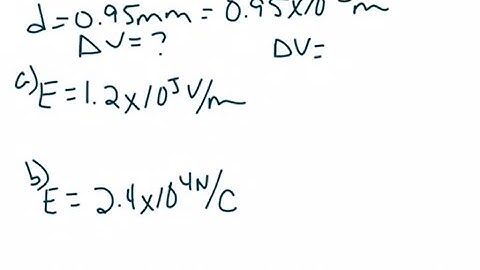 d = 0.95mm = 0.95x10 m
ΔV = ? ΔV =
a) E = 1.2x10⁵ V/m
b) E = 2.4x10⁴ N/C